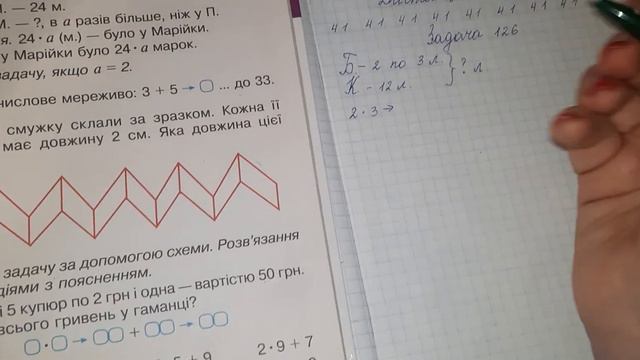 І. — 24 м.
М. — ?, в а разів більше, ніж у П.
я. 24 · а (м.) — було у Марійки.
у Марійки було 24 · а марок.
задачу, якщо а = 2.
числове мереживо: 3 + 5 → ... до 33.
смужку склали за зразком. Кожна її
має довжину 2 см. Яка довжина цієї
задачу за допомогою схеми. Розв'язання
діями з поясненням.
і 5 купюр по 2 грн і одна — вартістю 50 грн.
всього гривень у гаманці?
· → + →
5 + 9 2 · 9 + 7
41 41 41 41 41 41 41 41
Задача 126
Б – 2 по 3 л. } ? л
К – 12 л.
2 · 3 →